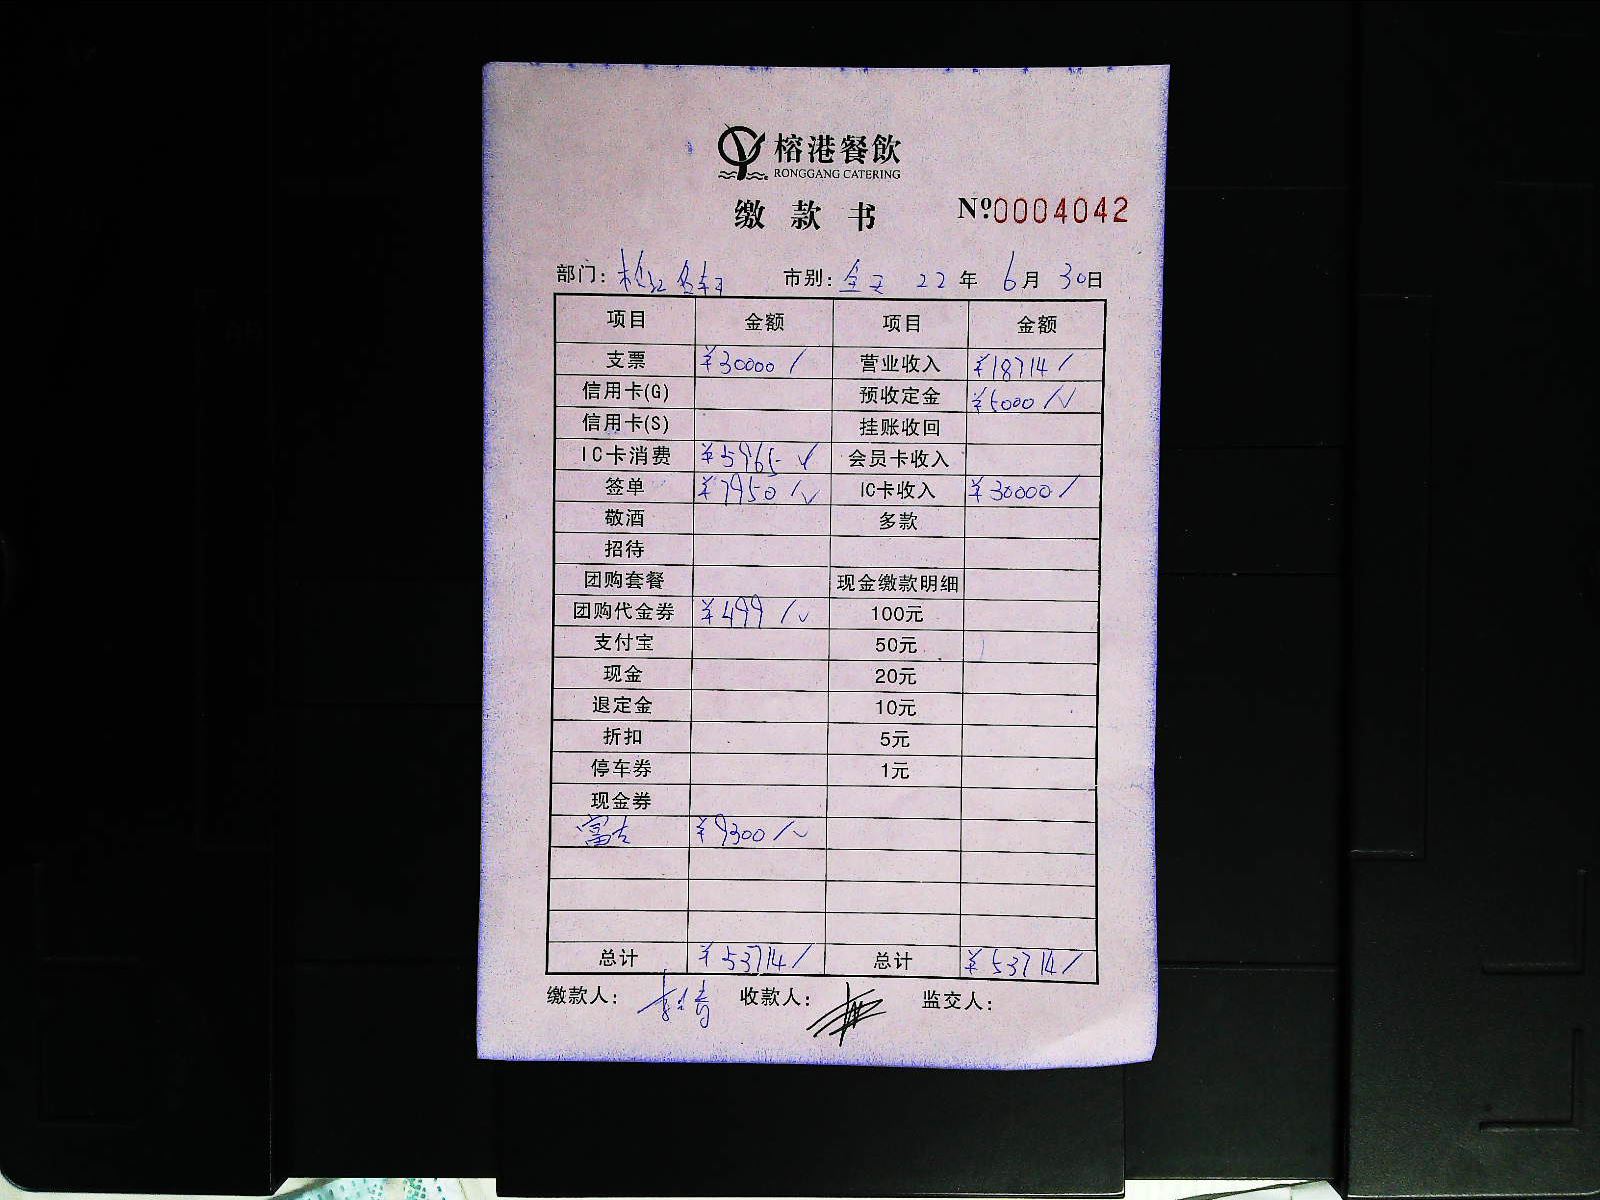 榕港餐飲
RONGGANG CATERING
缴款书 Nº0004042
部门: 市别: 全天 22年 6月 30日
项目 金额 项目 金额
支票 ¥30000/ 营业收入 ¥18714/
信用卡(G) 预收定金 ¥5000/√
信用卡(S) 挂账收回
IC卡消费 ¥5965-√ 会员卡收入
签单 ¥7950/√ IC卡收入 ¥30000/
敬酒 多款
招待
团购套餐 现金缴款明细
团购代金券 ¥499/√ 100元
支付宝 50元
现金 20元
退定金 10元
折扣 5元
停车券 1元
现金券
¥9300/√
总计 ¥53714/ 总计 ¥53714/
缴款人: 收款人: 监交人: